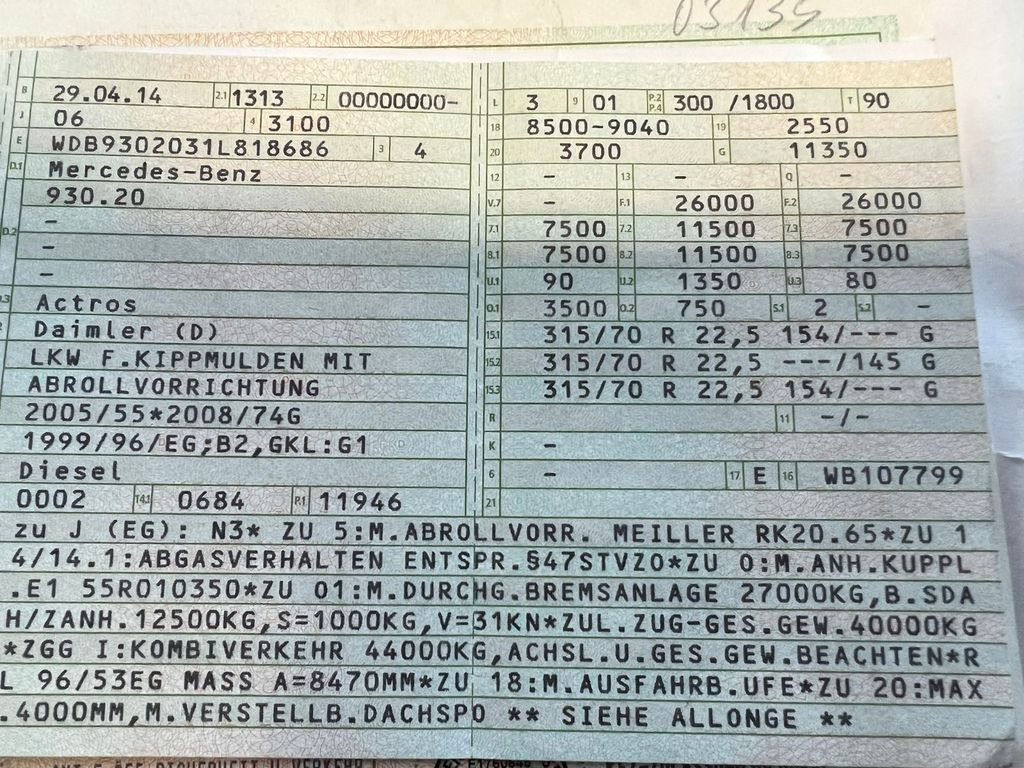 03135
B 29.04.14 2.1 1313 2.2 00000000-
J 06 4 3100
E WDB9302031L818686 3 4
D.1 Mercedes-Benz
930.20
-
D.2 -
-
Actros
Daimler (D)
LKW F.KIPPMULDEN MIT
ABROLLVORRICHTUNG
2005/55*2008/74G
1999/96/EG;B2,GKL:G1
Diesel
0002 14.1 0684 P.1 11946
L 3 9 01 P.2 P.4 300 /1800 T 90
18 8500-9040 19 2550
20 3700 G 11350
12 - 13 - Q -
V.7 - F.1 26000 F.2 26000
7.1 7500 7.2 11500 7.3 7500
8.1 7500 8.2 11500 8.3 7500
U.1 90 U.2 1350 U.3 80
O.1 3500 O.2 750 S.1 2 S.2 -
15.1 315/70 R 22,5 154/--- G
15.2 315/70 R 22,5 ---/145 G
15.3 315/70 R 22,5 154/--- G
R 11 -/-
K -
6 - 17 E 16 WB107799
21
zu J (EG): N3* ZU 5:M.ABROLLVORR. MEILLER RK20.65*ZU 1
4/14.1:ABGASVERHALTEN ENTSPR.§47STVZO*ZU O:M.ANH.KUPPL
.E1 55R010350*ZU O1:M.DURCHG.BREMSANLAGE 27000KG,B.SDA
H/ZANH.12500KG,S=1000KG,V=31KN*ZUL.ZUG-GES.GEW.40000KG
*ZGG I:KOMBIVERKEHR 44000KG,ACHSL.U.GES.GEW.BEACHTEN*R
L 96/53EG MASS A=8470MM*ZU 18:M.AUSFAHRB.UFE*ZU 20:MAX
.4000MM,M.VERSTELLB.DACHSPO ** SIEHE ALLONGE **